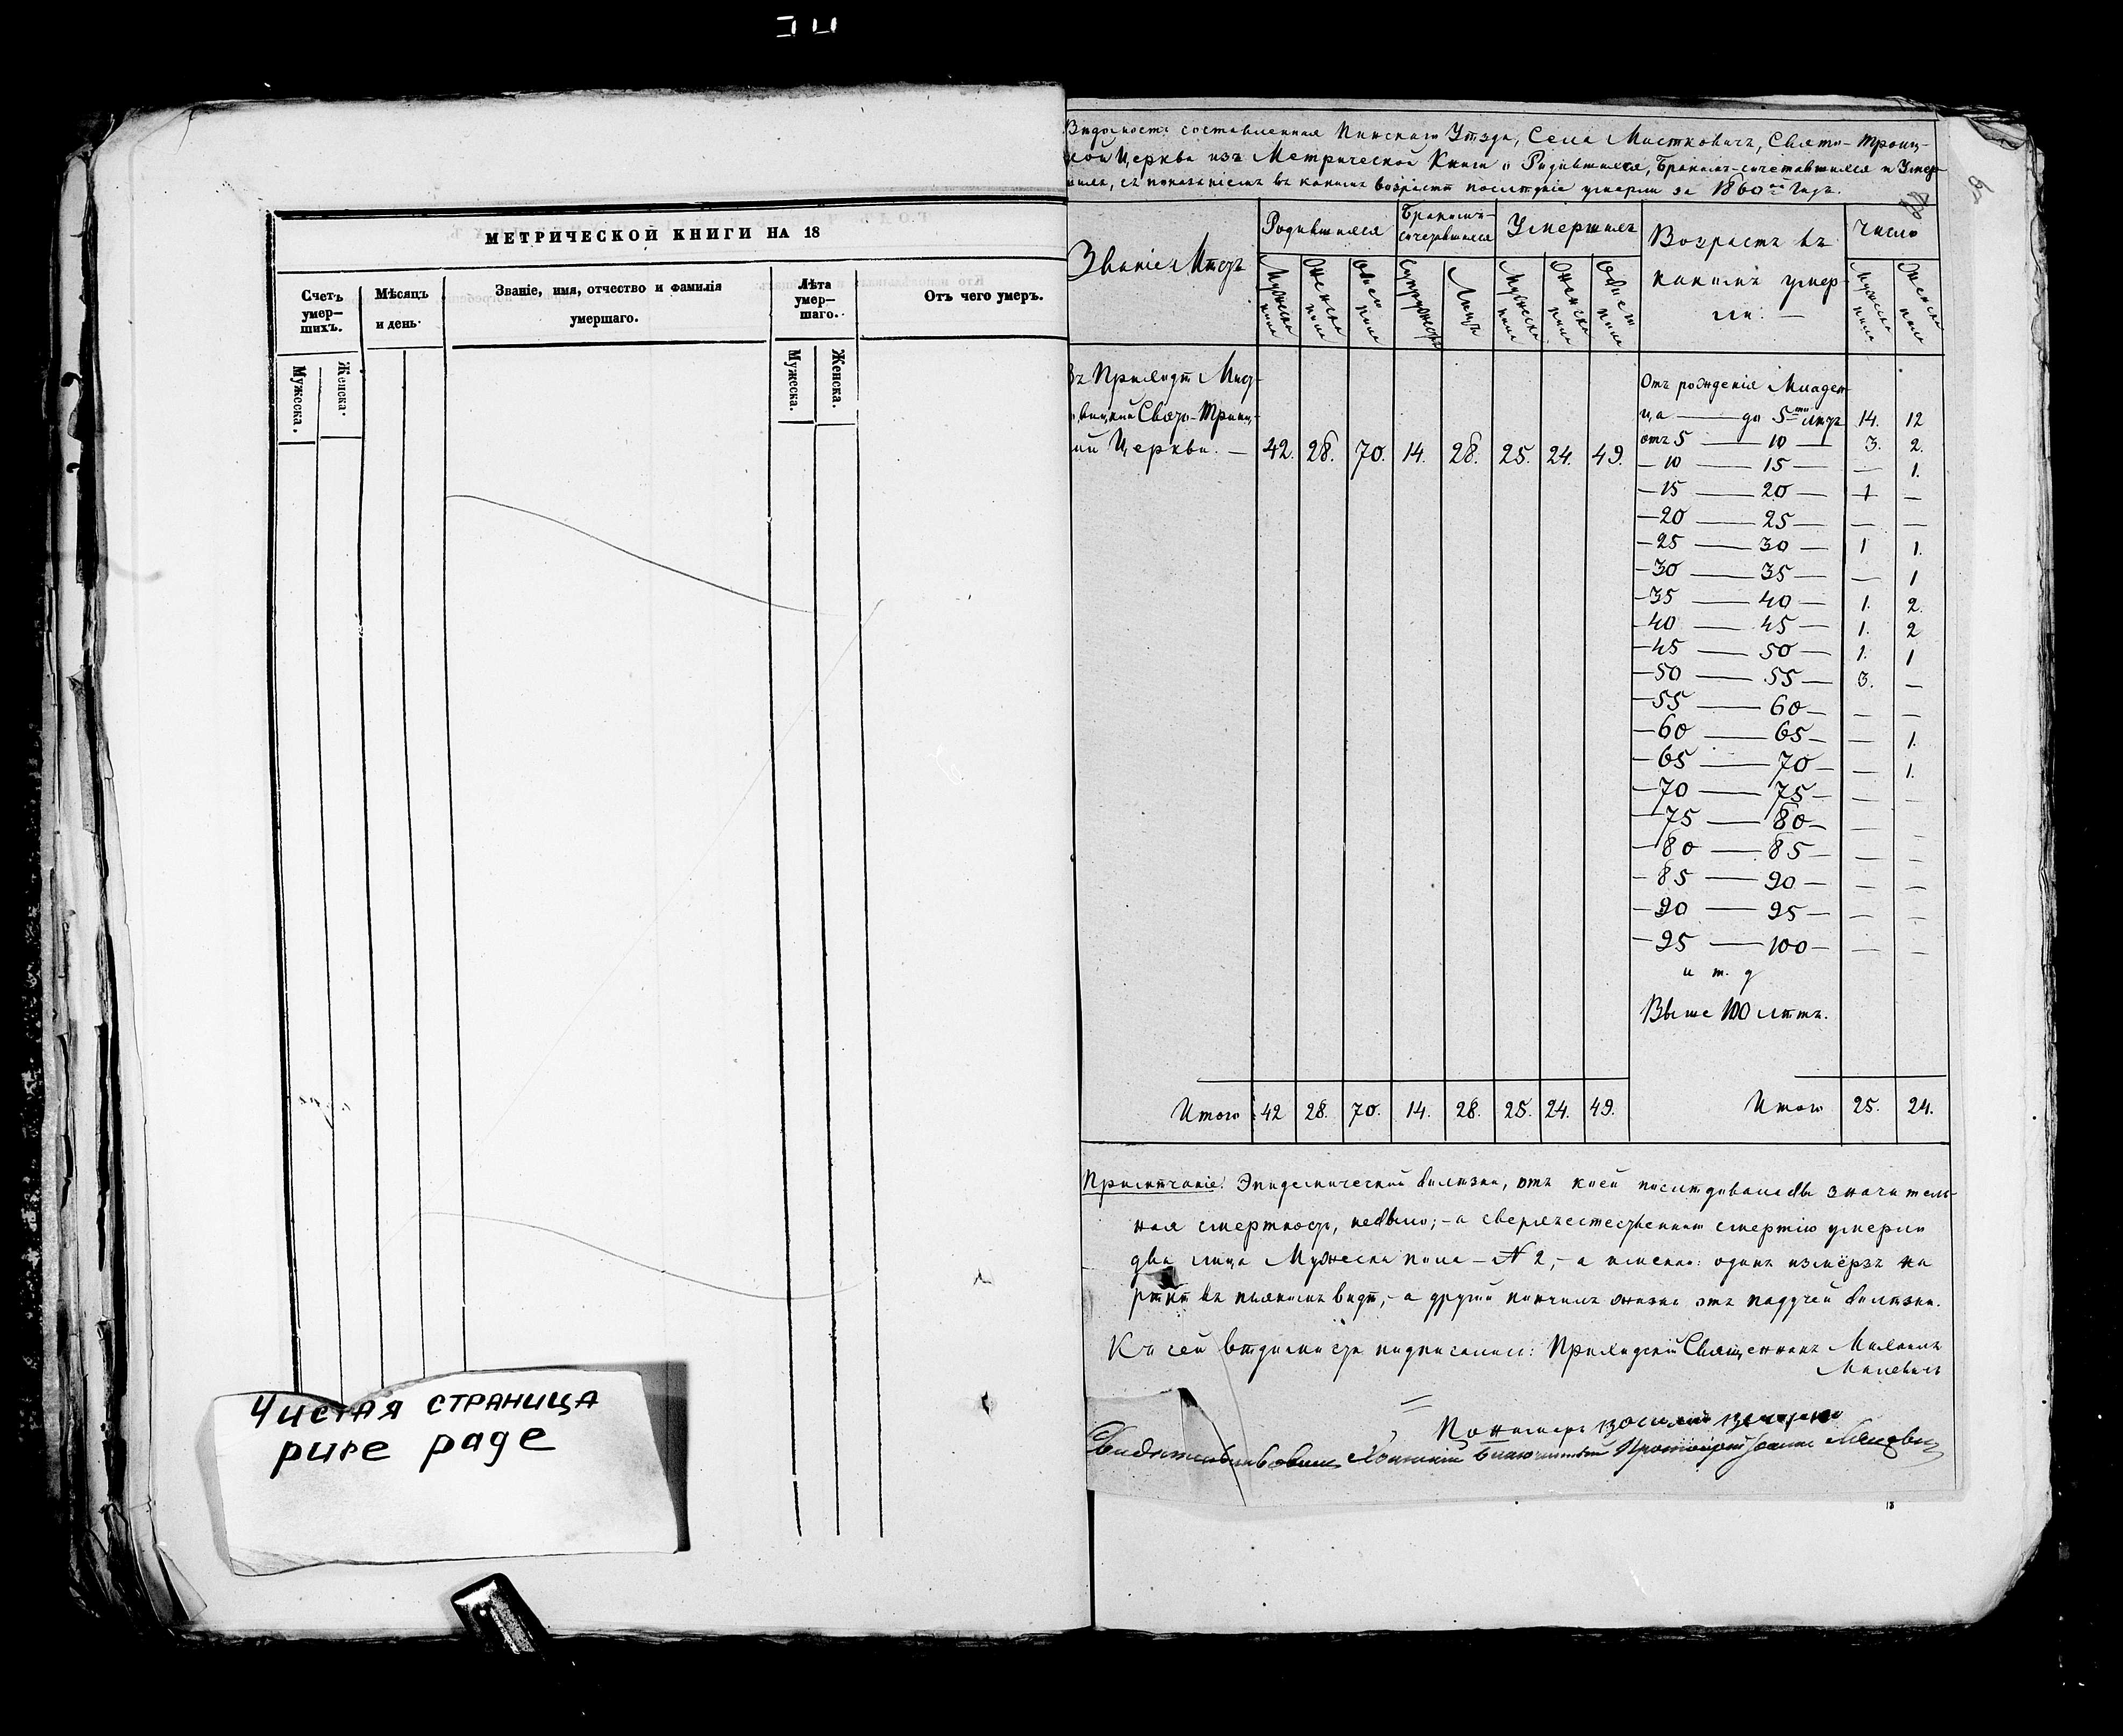 МЕТРИЧЕСКОЙ КНИГИ НА 18
Счетъ умер–шихъ.
Мѣсяцъ и день.
Званіе, имя, отчество и фамилія умершаго.
Лѣта умер–шаго.
Отъ чего умеръ.
Мужеска.
Женска.
Мужеска.
Женска.
Чистая страница
pure page
Вѣдомость составленная Пинскаго Уѣзда, Села Мистковичъ, Свято-Троиц-
кой Церкви изъ Метрической Книги о Родившихся, Бракомъ-сочетавшихся и Умер-
шихъ, съ показаніемъ въ какихъ возрастѣ послѣдніе умерли за 1860й Годъ.
Званіе Мѣстъ
Родившихся
Бракомъ-сочетавшихся
Умершихъ
Возрастъ въ какихъ умер-ли: —
Число
Мужеска пола
Женска пола
Обоего пола
Супружествъ
Лицъ
Мужеска пола
Женска пола
Обоего пола
Мужеска пола
Женска пола
Въ Приходѣ Мист-
ковицкой Свято-Троиц-
кой Церкви. — 42. 28. 70. 14. 28. 25. 24. 49.
Отъ рожденія Младен-
ца — до 5ти лѣтъ 14. 12
отъ 5 — 10 — 3. 2.
— 10 — 15 — — 1.
— 15 — 20 — 1 —
— 20 — 25 — — —
— 25 — 30 — 1 1.
— 30 — 35 — — 1
— 35 — 40 — 1. 2.
— 40 — 45 — 1. 2
— 45 — 50 — 1. 1
— 50 — 55 — 3. —
— 55 — 60 — — —
— 60 — 65 — — 1.
— 65 — 70 — — 1.
— 70 — 75 — — —
— 75 — 80 — — —
— 80 — 85 — — —
— 85 — 90 — — —
— 90 — 95 — — —
— 95 — 100 — — —
и т. д
Выше 100 лѣтъ.
Итого 42 28. 70. 14. 28. 25. 24. 49.
Итого 25. 24.
Примѣчаніе. Эпидемической болѣзни, отъ коей послѣдовала бы значитель-
ная смертность, небыло; – а сверхъестественною смертію умерли
два лица Мужеска пола – N 2, – а именно: одинъ измёрзъ на
рѣкѣ въ пьяномъ видѣ, – а другой кончилъ жизнь отъ падучей болѣзни.
Къ сей вѣдомости подписались: Приходскій Священникъ Михаилъ
Малевичъ
Пономарь Василій
Благочинный Протоіерей Іоаннъ